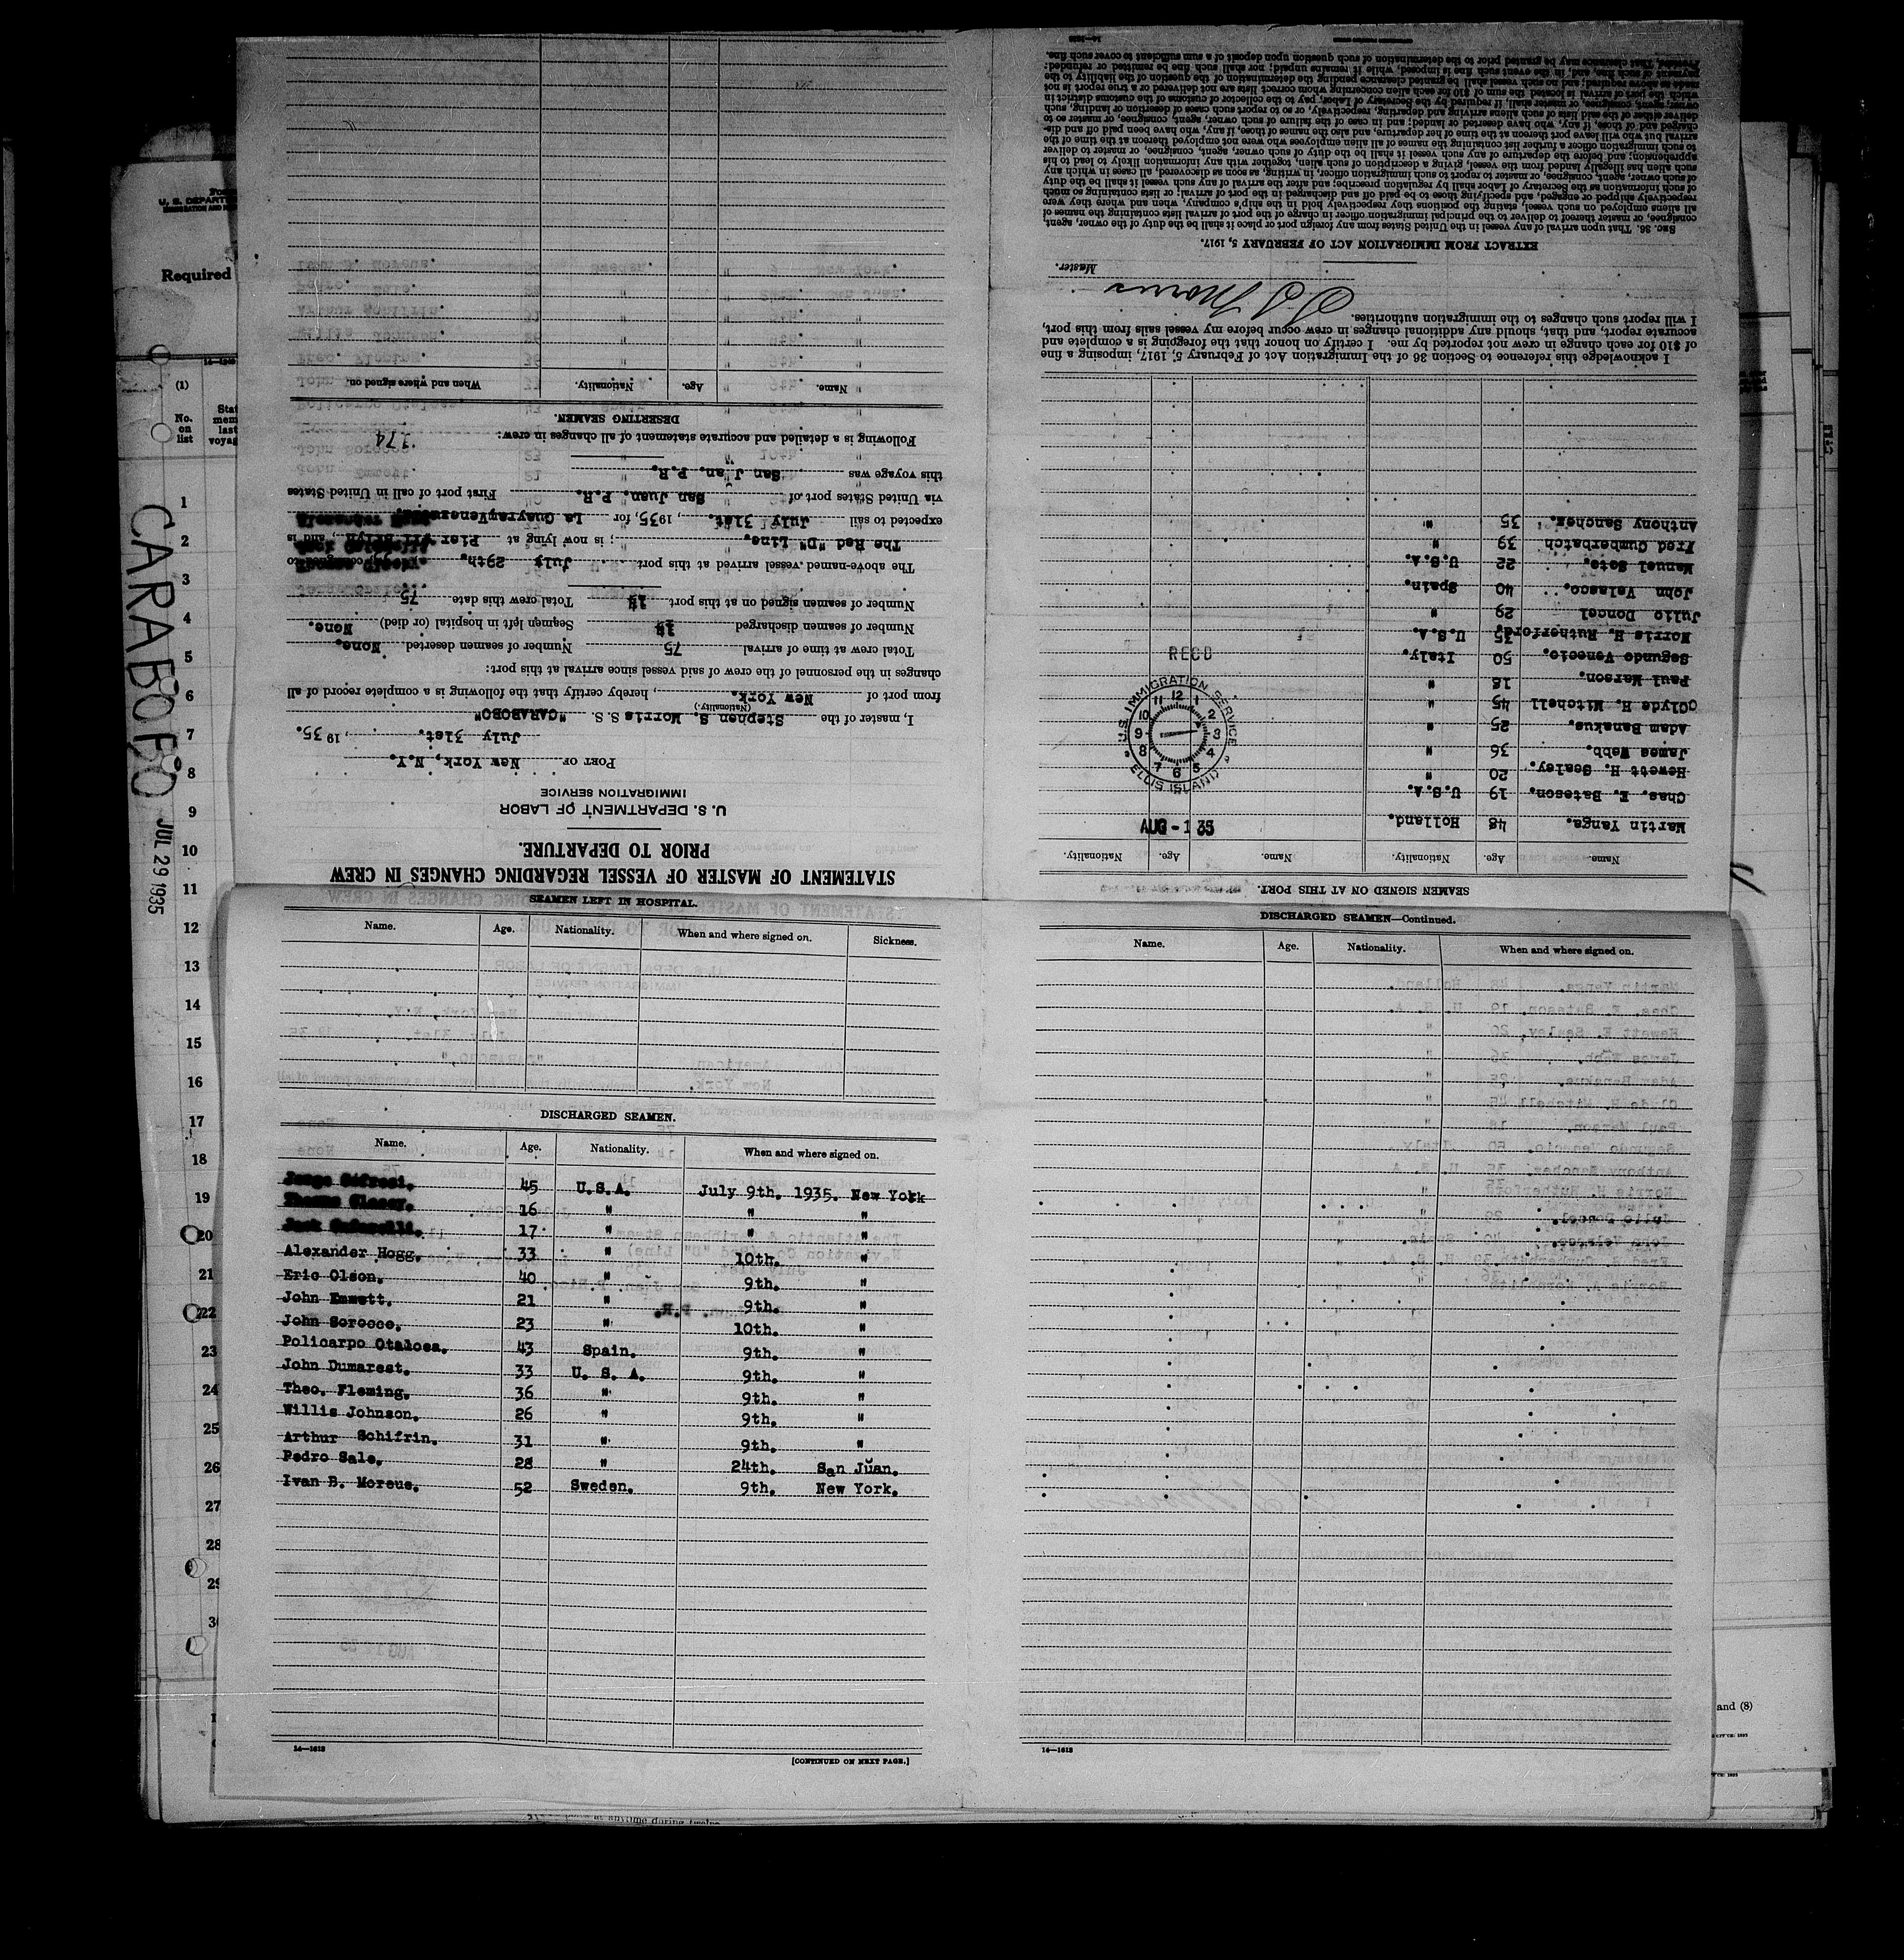 STATEMENT OF MASTER OF VESSEL REGARDING CHANGES IN CREW
PRIOR TO DEPARTURE.
U. S. DEPARTMENT OF LABOR
IMMIGRATION SERVICE
PORT OF New York, N.Y.
July 31st. , 1935.
I, master of the Stephen S. Morris S. S. "CARABOBO"
(Nationality.)
from port of New York. , hereby certify that the following is a complete record of all
changes in the personnel of the crew of said vessel since arrival at this port:
Total crew at time of arrival 75 Number of seamen deserted None.
Number of seamen discharged 14 Seamen left in hospital (or died) None.
Number of seamen signed on at this port 14 Total crew this date 75
The above-named vessel arrived at this port July 29th.
The Red "D" Line. ; is now lying at Pier , and is
expected to sail July 31st. , 1935, for La Guayra, Venezuela.
via United States port of San Juan. P.R. First port of call in United States
this voyage was San Juan. P.R.
Following is a detailed and accurate statement of all changes in crew: 174
DESERTING SEAMEN.
Name. Age. Nationality. When and where signed on.
SEAMEN LEFT IN HOSPITAL.
Name. Age. Nationality. When and where signed on. Sickness.
DISCHARGED SEAMEN.
Name. Age. Nationality. When and where signed on.
45 U.S.A. July 9th. 1935. New York
16 " " "
17 " " "
Alexander Hogg. 33 " 10th. "
Eric Olson. 40 " 9th. "
John Emmett. 21 " 9th. "
John Sorocco. 23 " 10th. "
Policarpo Otalcea. 43 Spain. 9th. "
John Dumarest. 33 U. S. A. 9th. "
Theo. Fleming. 36 " 9th. "
Willis Johnson. 26 " 9th. "
Arthur Schifrin. 31 " 9th. "
Pedro Sale. 28 " 24th. San Juan.
Ivan B. Moreus. 52 Sweden. 9th. New York.
14—1618
[CONTINUED ON NEXT PAGE.]
DISCHARGED SEAMEN—Continued.
Name. Age. Nationality. When and where signed on.
14—1618
SEAMEN SIGNED ON AT THIS PORT.
Name. Age. Nationality. Name. Age. Nationality.
Martin Yanga. 48 Holland.
Chas. E. Bateson. 19 U.S.A.
Hewett H. Sealey. 20 "
James Webb. 36 "
Adam Banakus. 25 "
Clyde H. Mitchell 45 "
Paul Marson. 18 "
Segundo Venecio. 50 Italy.
Morris H. Rutherford. 35 U.S.A.
Julio Doncel 29 "
John Velasco. 40 Spain.
Manuel Soto. 22 U.S.A.
Fred Cumberbatch 39 "
Anthony Sanchez. 35 "
AUG - 1 35
U.S. IMMIGRATION SERVICE
ELLIS ISLAND
12 1 2 3 4 5 6 7 8 9 10 11
RECD
I acknowledge this reference to Section 36 of the Immigration Act of February 5, 1917, imposing a fine
of $10 for each change in crew not reported by me. I certify on honor that the foregoing is a complete and
accurate report, and that, should any additional changes in crew occur before my vessel sails from this port,
I will report such changes to the immigration authorities.
S S Morris
Master.
EXTRACT FROM IMMIGRATION ACT OF FEBRUARY 5, 1917.
SEC. 36. That upon arrival of any vessel in the United States from any foreign port or place it shall be the duty of the owner, agent,
consignee, or master thereof to deliver to the principal immigration officer in charge of the port of arrival lists containing the names of
all aliens employed on such vessel, stating the positions they respectively hold in the ship's company, when and where they were
respectively shipped or engaged, and specifying those to be paid off and discharged in the port of arrival; or lists containing so much
of such information as the Secretary of Labor shall by regulation prescribe; and after the arrival of any such vessel it shall be the duty
of such owner, agent, consignee, or master to report to such immigration officer, in writing, as soon as discovered, all cases in which any
such alien has illegally landed from the vessel, giving a description of such alien, together with any information likely to lead to his
apprehension; and before the departure of any such vessel it shall be the duty of such owner, agent, consignee, or master to deliver
to such immigration officer a further list containing the names of all alien employees who were not employed thereon at the time of the
arrival but who will leave port thereon at the time of her departure, and also the names of those, if any, who have been paid off and dis-
charged and of those, if any, who have deserted or landed; and in case of the failure of such owner, agent, consignee, or master so to
deliver either of the said lists of such aliens arriving and departing, respectively, or so to report such cases of desertion or landing, such
owner, agent, consignee, or master shall, if required by the Secretary of Labor, pay to the collector of customs of the customs district in
which the port of arrival is located the sum of $10 for each alien concerning whom correct lists are not delivered or a true report is not
made as above required; and no such vessel shall be granted clearance pending the determination of the question of the liability to the
payment of such fine, and, in the event such fine is imposed, while it remains unpaid; nor shall such fine be remitted or refunded:
Provided, That clearance may be granted prior to the determination of such question upon deposit of a sum sufficient to cover such fine.
CARABOBO
JUL 29 1935
Required
(1)
No.
on
list
1
2
3
4
5
6
7
8
9
10
11
12
13
14
15
16
17
18
19
20
21
22
23
24
25
26
27
28
and (8)